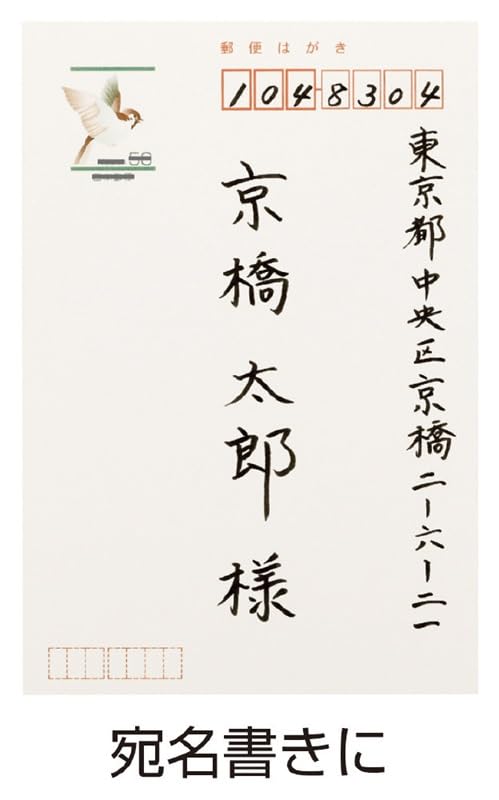 郵便はがき
104-8304
東京都中央区京橋二ー六ー二一
京橋太郎様
宛名書きに